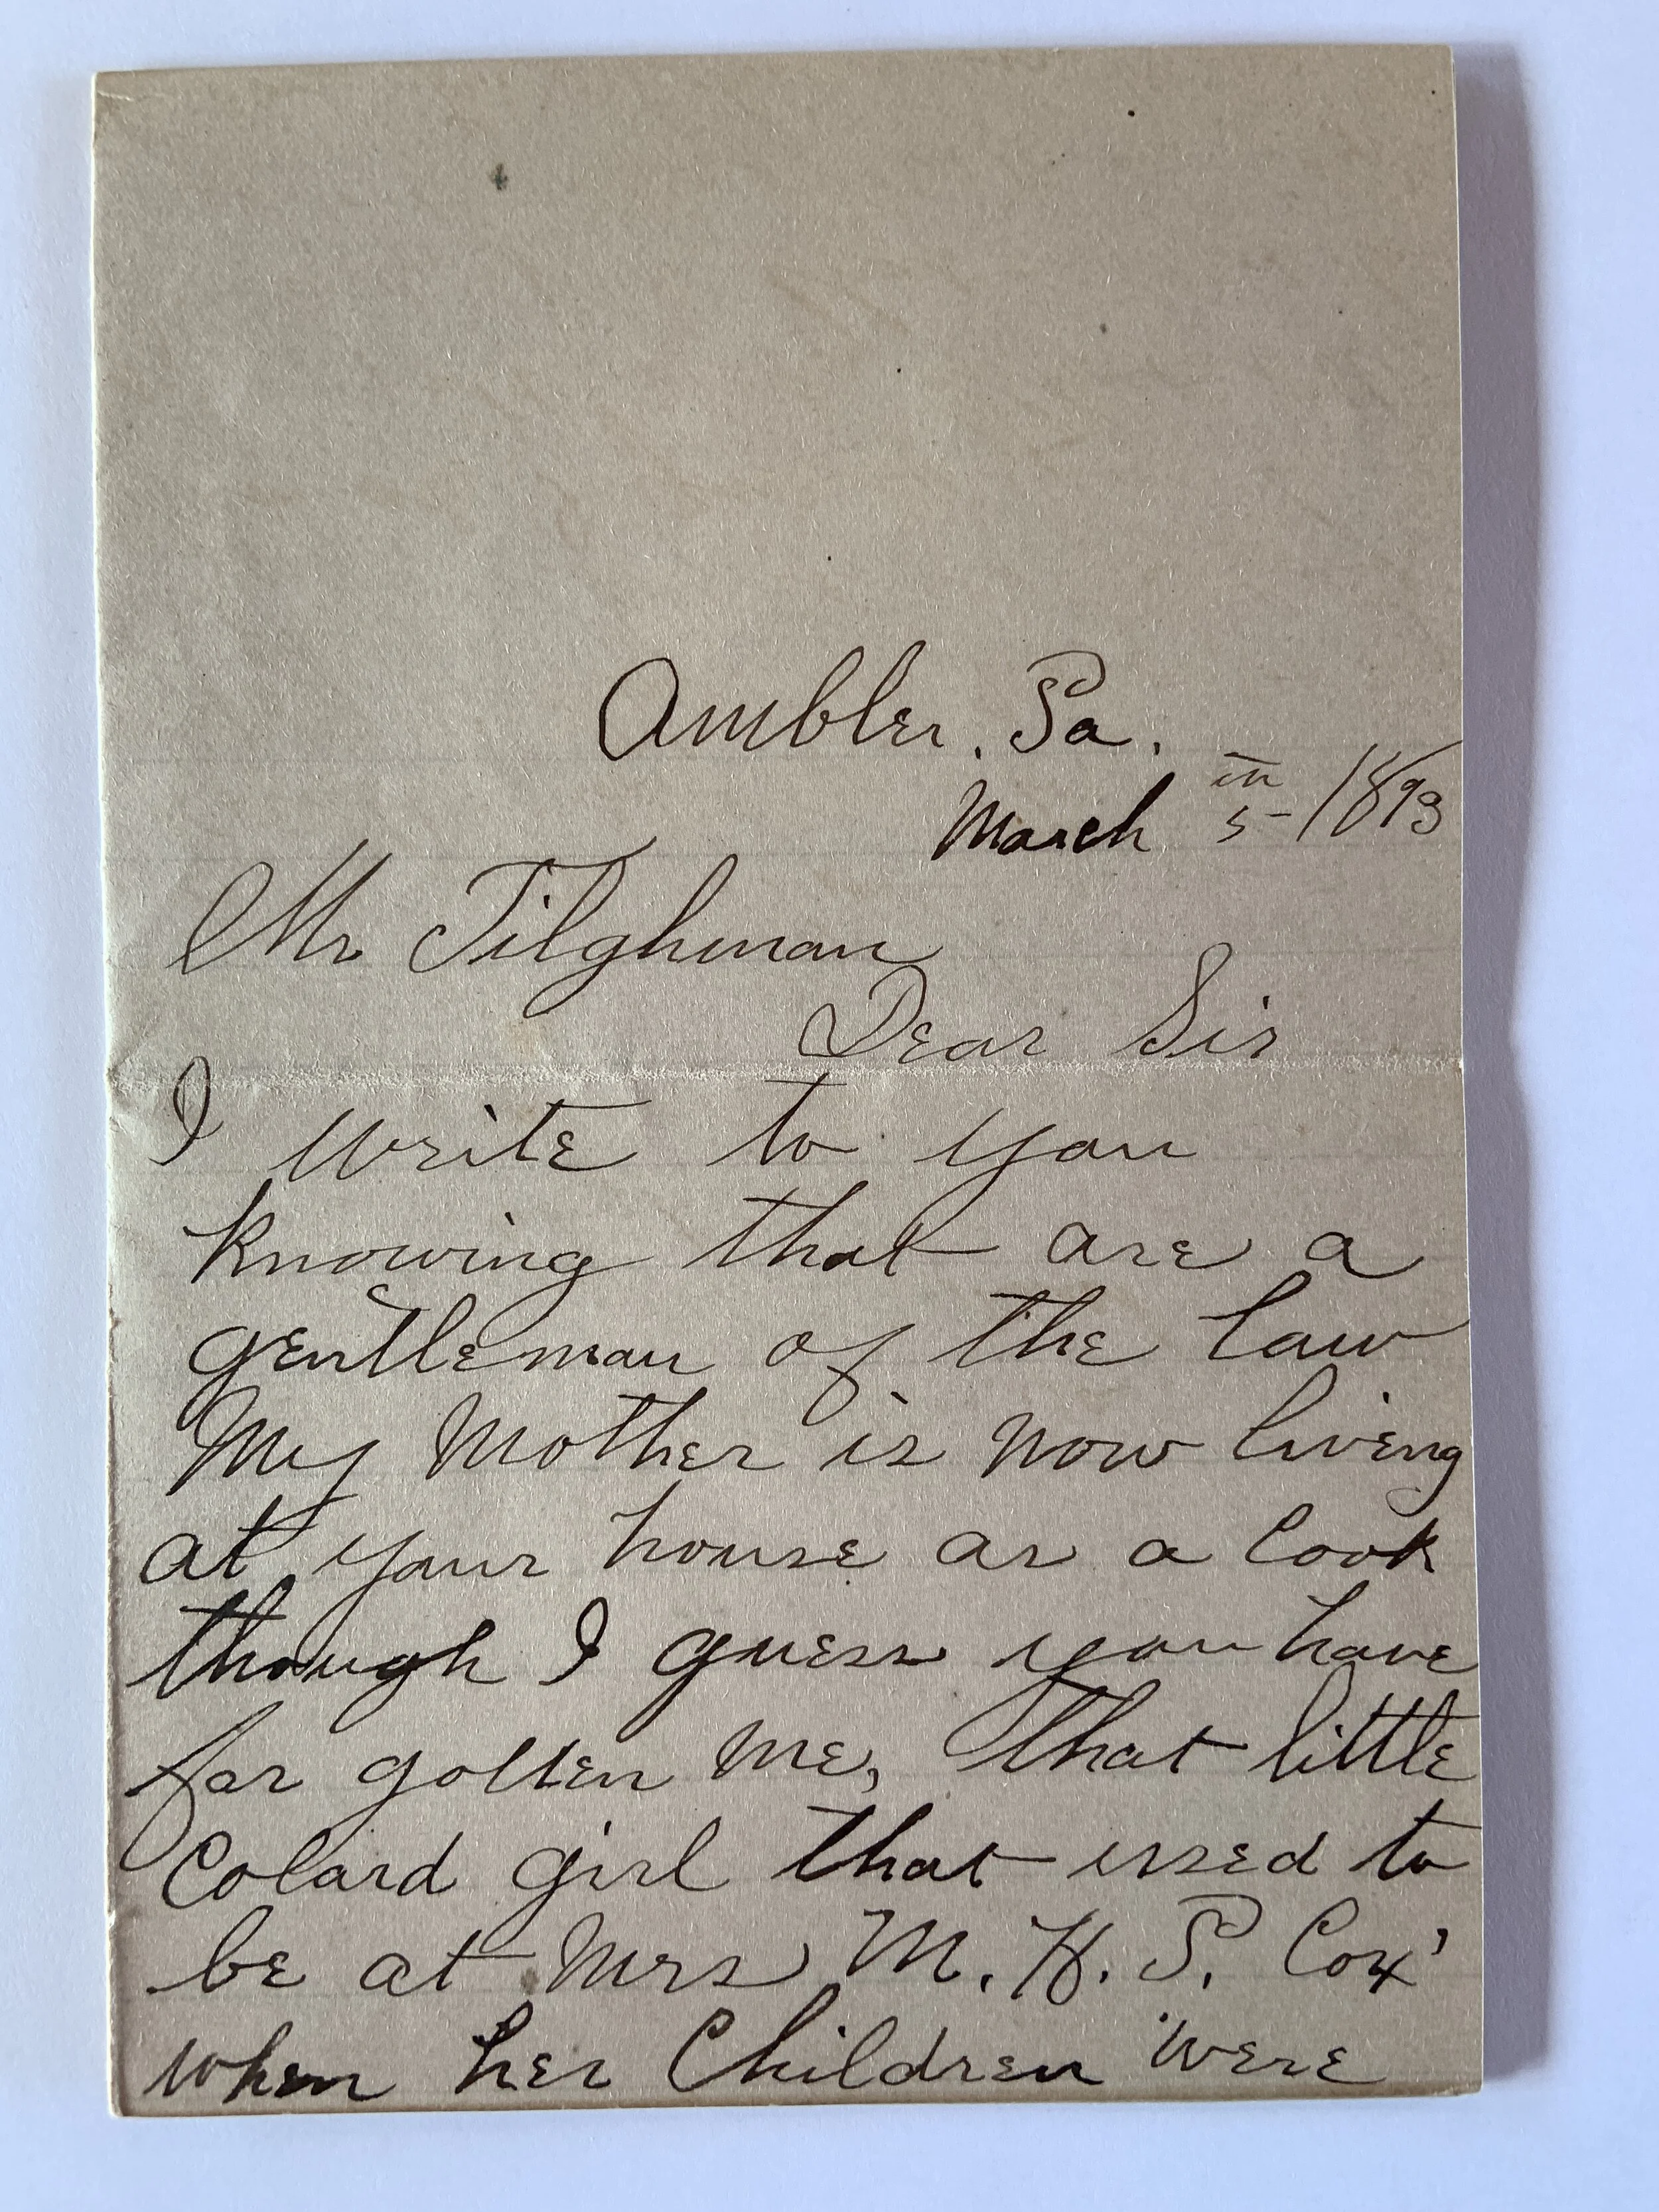 Ambler. Pa.
March 5th 1893
Mr Tilghman
Dear Sir
I write to you
knowing that are a
gentleman of the law
My Mother is now living
at your house as a Cook
though I guess you have
for gotten me, that little
Colard girl that used to
be at Mrs M. H. S. Cox'
when her Children were